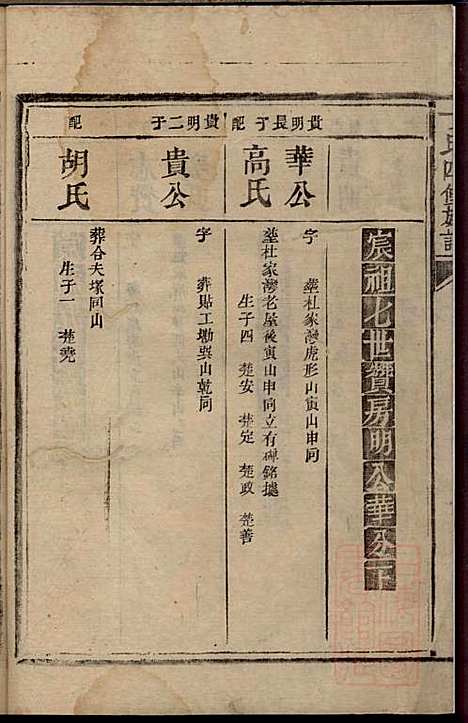 宸祖七世贊房明公華公下
貴明長子
華公
字
塟杜家灣虎形山寅山申向
配
高氏
塟杜家灣老屋後寅山申向立有碑銘據
生子四 楚安 楚定 楚政 楚善
貴明二子
貴公
字
葬貼工塝巽山乾向
配
胡氏
葬合夫塚同山
生子一 楚堯
氏四修族譜